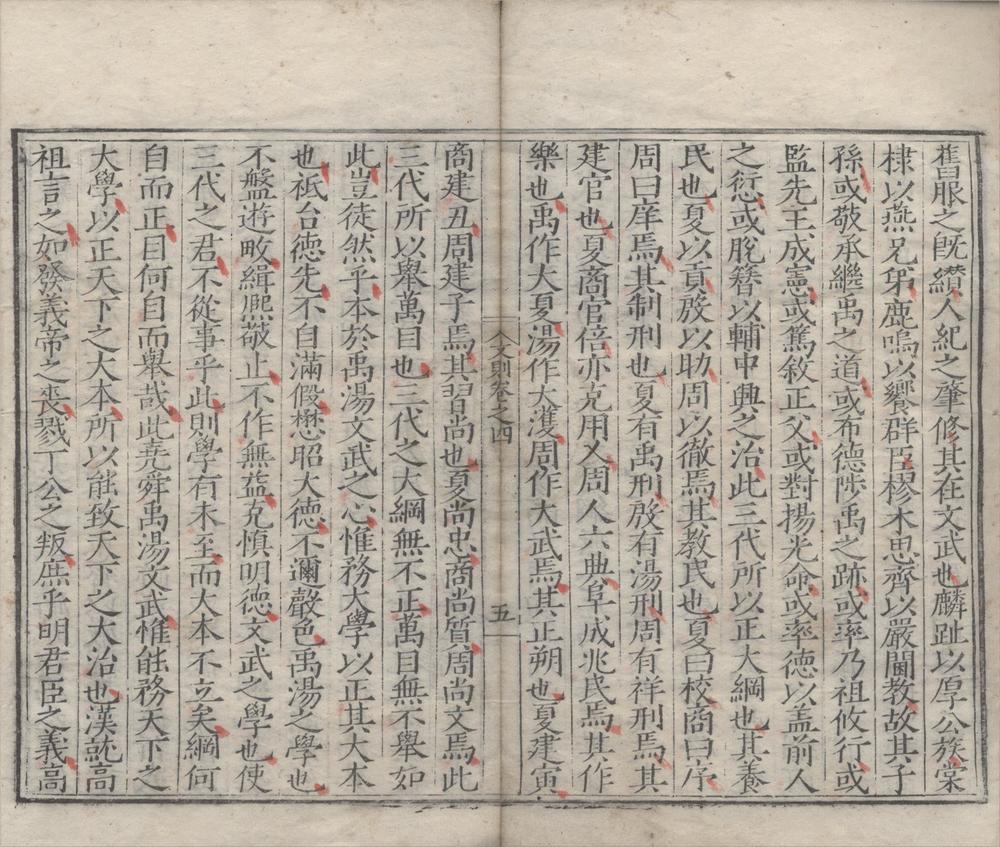 舊服之旣纘人紀之肇修其在文武也麟趾以厚公族棠
棣以燕兄弟鹿鳴以饗群臣樛木思齊以嚴閫教故其子
孫或敬承繼禹之道或布德陟禹之跡或率乃祖攸行或
監先王成憲或篤敘正父或對揚光命或率德以盖前人
之愆或脫簪以輔中興之治此三代所以正大綱也其養
民也夏以貢殷以助周以徹焉其教民也夏曰校商曰序
周曰庠焉其制刑也夏有禹刑殷有湯刑周有祥刑焉其
建官也夏商官倍亦克用乂周人六典阜成兆民焉其作
樂也禹作大夏湯作大濩周作大武焉其正朔也夏建寅
文則卷之四
五
商建丑周建子焉其習尚也夏尚忠商尚質周尚文焉此
三代所以舉萬目也三代之大綱無不正萬目無不舉如
此豈徒然乎本於禹湯文武之心惟務大學以正其大本
也祇台德先不自滿假懋昭大德不邇聲色禹湯之學也
不盤遊畋緝熙敬止不作無益克慎明德文武之學也使
三代之君不從事乎此則學有未至而大本不立矣綱何
自而正目何自而舉哉此堯舜禹湯文武惟能務天下之
大學以正天下之大本所以能致天下之大治也漢就高
祖言之如發義帝之喪戮丁公之叛庶乎明君臣之義高